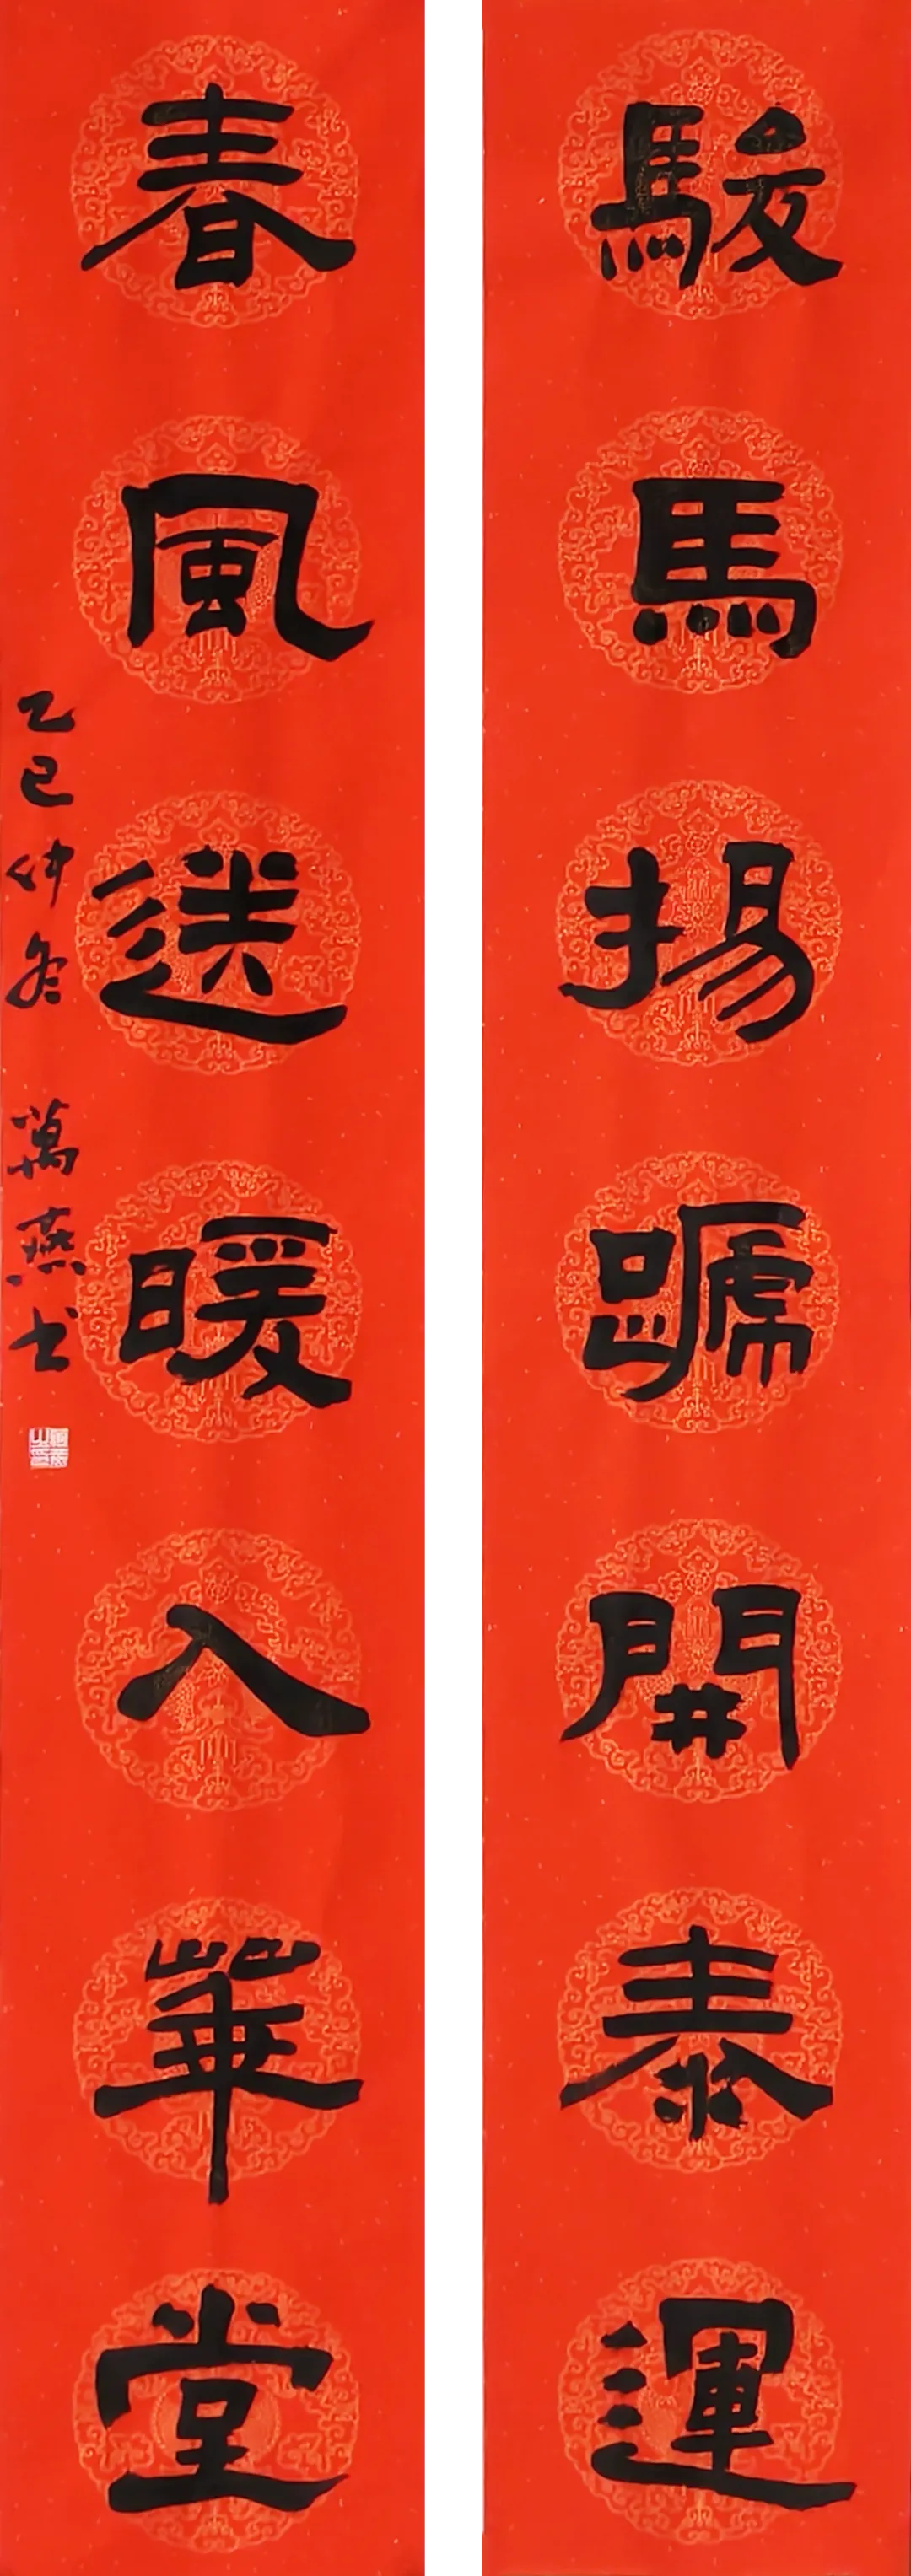 駿馬揚蹏開泰運
春風送暖入華堂
乙巳仲冬 萬燕书